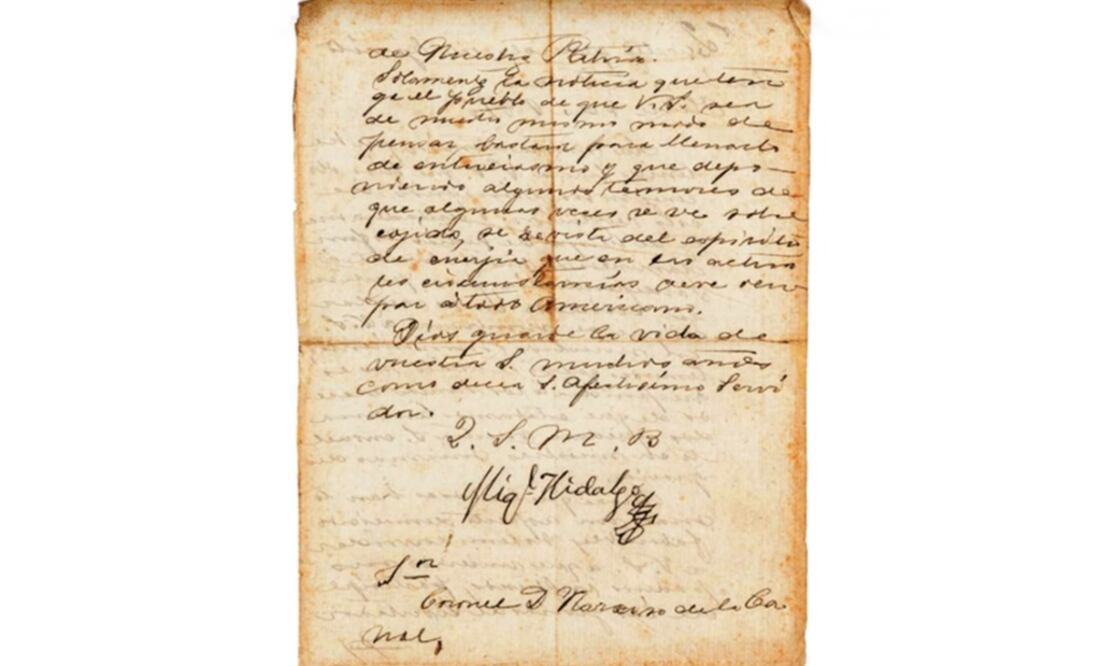 de Nuestra Patria.
Solamente la noticia que ten
ga el pueblo de que V.S. sea
de nuestro mismo modo de
pensar, bastara para llenarlo
de entuciasmo y que depo-
niendo algunos temores de
que algunas veces se ve sobre
cojido, se revista del espiritu
de energia que en las actua
les circunstancias deve reu
par á todo Americano.
Dios guarde la vida de
vuestra S. muchos años
como decea S. Afectisimo Servi
dor.
Q. S. M. B
Migl. Hidalgo
Sor
Coronel D Narciso de la Ca
nal,